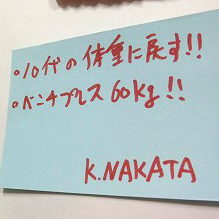 ・10代の体重に戻す!!
・ベンチプレス60kg!!
K.NAKATA